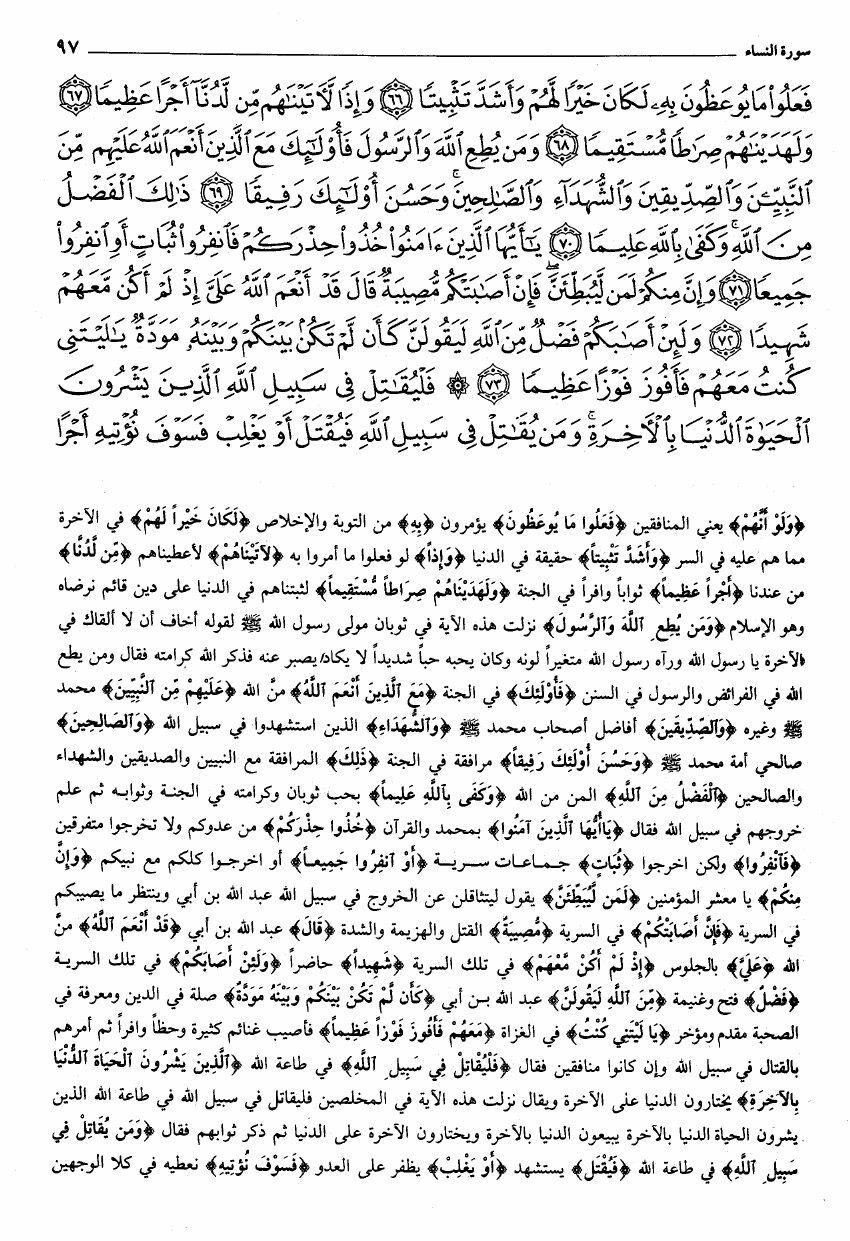 سورة النساء ٩٧
فَعَلُوا۟ مَا يُوعَظُونَ بِهِۦ لَكَانَ خَيْرًا لَّهُمْ وَأَشَدَّ تَثْبِيتًا ﴿٦٦﴾ وَإِذًا لَّأٓتَيْنَٰهُم مِّن لَّدُنَّآ أَجْرًا عَظِيمًا ﴿٦٧﴾
وَلَهَدَيْنَٰهُمْ صِرَٰطًا مُّسْتَقِيمًا ﴿٦٨﴾ وَمَن يُطِعِ ٱللَّهَ وَٱلرَّسُولَ فَأُو۟لَٰٓئِكَ مَعَ ٱلَّذِينَ أَنْعَمَ ٱللَّهُ عَلَيْهِم مِّنَ
ٱلنَّبِيِّـۧنَ وَٱلصِّدِّيقِينَ وَٱلشُّهَدَآءِ وَٱلصَّٰلِحِينَ ۚ وَحَسُنَ أُو۟لَٰٓئِكَ رَفِيقًا ﴿٦٩﴾ ذَٰلِكَ ٱلْفَضْلُ
مِنَ ٱللَّهِ ۚ وَكَفَىٰ بِٱللَّهِ عَلِيمًا ﴿٧٠﴾ يَٰٓأَيُّهَا ٱلَّذِينَ ءَامَنُوا۟ خُذُوا۟ حِذْرَكُمْ فَٱنفِرُوا۟ ثُبَاتٍ أَوِ ٱنفِرُوا۟
جَمِيعًا ﴿٧١﴾ وَإِنَّ مِنكُمْ لَمَن لَّيُبَطِّئَنَّ ۖ فَإِنْ أَصَٰبَتْكُم مُّصِيبَةٌ قَالَ قَدْ أَنْعَمَ ٱللَّهُ عَلَىَّ إِذْ لَمْ أَكُن مَّعَهُمْ
شَهِيدًا ﴿٧٢﴾ وَلَئِنْ أَصَٰبَكُمْ فَضْلٌ مِّنَ ٱللَّهِ لَيَقُولَنَّ كَأَن لَّمْ تَكُنۢ بَيْنَكُمْ وَبَيْنَهُۥ مَوَدَّةٌ يَٰلَيْتَنِى
كُنتُ مَعَهُمْ فَأَفُوزَ فَوْزًا عَظِيمًا ﴿٧٣﴾ ۞ فَلْيُقَٰتِلْ فِى سَبِيلِ ٱللَّهِ ٱلَّذِينَ يَشْرُونَ
ٱلْحَيَوٰةَ ٱلدُّنْيَا بِٱلْأَخِرَةِ ۚ وَمَن يُقَٰتِلْ فِى سَبِيلِ ٱللَّهِ فَيُقْتَلْ أَوْ يَغْلِبْ فَسَوْفَ نُؤْتِيهِ أَجْرًا
﴿وَلَوْ أَنَّهُمْ﴾ يعني المنافقين ﴿فَعَلُوا مَا يُوعَظُونَ﴾ يؤمرون ﴿بِهِ﴾ من التوبة والإخلاص ﴿لَكَانَ خَيْراً لَهُمْ﴾ في الآخرة
مما هم عليه في السر ﴿وَأَشَدَّ تَثْبِيتاً﴾ حقيقة في الدنيا ﴿وَإِذاً﴾ لو فعلوا ما أمروا به ﴿لآتَيْنَاهُمْ﴾ لأعطيناهم ﴿مِّن لَّدُنَّا﴾
من عندنا ﴿أَجْراً عَظِيماً﴾ ثواباً وافراً في الجنة ﴿وَلَهَدَيْنَاهُمْ صِرَاطاً مُّسْتَقِيماً﴾ لثبتناهم في الدنيا على دين قائم نرضاه
وهو الإسلام ﴿وَمَن يُطِعِ ٱللَّهَ وَٱلرَّسُولَ﴾ نزلت هذه الآية في ثوبان مولى رسول الله ﷺ لقوله أخاف أن لا ألقاك في
الآخرة يا رسول الله ورآه رسول الله متغيراً لونه وكان يحبه حباً شديداً لا يكاد يصبر عنه فذكر الله كرامته فقال ومن يطع
الله في الفرائض والرسول في السنن ﴿فَأُوْلَئِكَ﴾ في الجنة ﴿مَعَ ٱلَّذِينَ أَنْعَمَ ٱللَّهُ﴾ منَّ الله ﴿عَلَيْهِمْ مِّنَ ٱلنَّبِيِّينَ﴾ محمد
ﷺ وغيره ﴿وَٱلصِّدِّيقِينَ﴾ أفاضل أصحاب محمد ﷺ ﴿وَٱلشُّهَدَاءِ﴾ الذين استشهدوا في سبيل الله ﴿وَٱلصَّالِحِينَ﴾
صالحي أمة محمد ﷺ ﴿وَحَسُنَ أُوْلَئِكَ رَفِيقاً﴾ مرافقة في الجنة ﴿ذَلِكَ﴾ المرافقة مع النبيين والصديقين والشهداء
والصالحين ﴿ٱلْفَضْلُ مِنَ ٱللَّهِ﴾ المن من الله ﴿وَكَفَى بِٱللَّهِ عَلِيماً﴾ بحب ثوبان وكرامته في الجنة وثوابه ثم علم
خروجهم في سبيل الله فقال ﴿يَاأَيُّهَا ٱلَّذِينَ آمَنُوا﴾ بمحمد والقرآن ﴿خُذُوا حِذْرَكُمْ﴾ من عدوكم ولا تخرجوا متفرقين
﴿فَٱنْفِرُوا﴾ ولكن اخرجوا ﴿ثُبَاتٍ﴾ جماعات سرية ﴿أَوِ ٱنْفِرُوا جَمِيعاً﴾ أو اخرجوا كلكم مع نبيكم ﴿وَإِنَّ
مِنكُمْ﴾ يا معشر المؤمنين ﴿لَمَن لَّيُبَطِّئَنَّ﴾ يقول ليتثاقلن عن الخروج في سبيل الله عبد الله بن أبي وينتظر ما يصيبكم
في السرية ﴿فَإِنْ أَصَابَتْكُمْ﴾ في السرية ﴿مُّصِيبَةٌ﴾ القتل والهزيمة والشدة ﴿قَالَ﴾ عبد الله بن أبي ﴿قَدْ أَنْعَمَ ٱللَّهُ﴾ منَّ
الله ﴿عَلَيَّ﴾ بالجلوس ﴿إِذْ لَمْ أَكُنْ مَّعَهُمْ﴾ في تلك السرية ﴿شَهِيداً﴾ حاضراً ﴿وَلَئِنْ أَصَابَكُمْ﴾ في تلك السرية
﴿فَضْلٌ﴾ فتح وغنيمة ﴿مِّنَ ٱللَّهِ لَيَقُولَنَّ﴾ عبد الله بن أبي ﴿كَأَن لَّمْ تَكُنْ بَيْنَكُمْ وَبَيْنَهُ مَوَدَّةٌ﴾ صلة في الدين ومعرفة في
الصحبة مقدم ومؤخر ﴿يَا لَيْتَنِي كُنْتُ﴾ في الغزاة ﴿مَعَهُمْ فَأَفُوزَ فَوْزاً عَظِيماً﴾ فأصيب غنائم كثيرة وحظاً وافراً ثم أمرهم
بالقتال في سبيل الله وإن كانوا منافقين فقال ﴿فَلْيُقَاتِلْ فِي سَبِيلِ ٱللَّهِ﴾ في طاعة الله ﴿ٱلَّذِينَ يَشْرُونَ ٱلْحَيَاةَ ٱلدُّنْيَا
بِالآخِرَةِ﴾ يختارون الدنيا على الآخرة ويقال نزلت هذه الآية في المخلصين فليقاتل في سبيل الله في طاعة الله الذين
يشرون الحياة الدنيا بالآخرة يبيعون الدنيا بالآخرة ويختارون الآخرة على الدنيا ثم ذكر ثوابهم فقال ﴿وَمَن يُقَاتِلْ فِي
سَبِيلِ ٱللَّهِ﴾ في طاعة الله ﴿فَيُقْتَلْ﴾ يستشهد ﴿أَوْ يَغْلِبْ﴾ يظفر على العدو ﴿فَسَوْفَ نُؤْتِيهِ﴾ نعطيه في كلا الوجهين